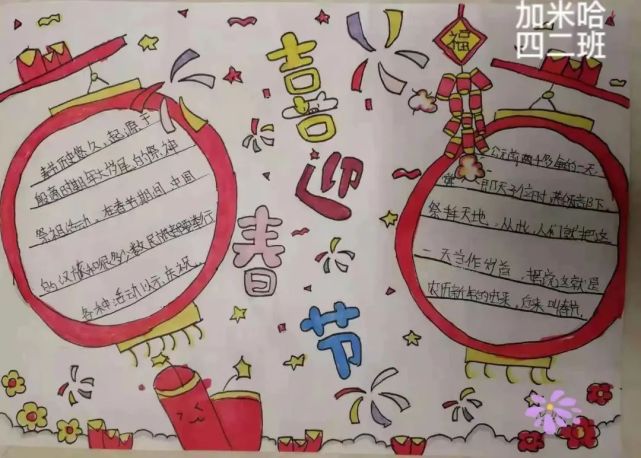 加米哈
四二班
福
喜迎春节
春节历史悠久，起源于
殷商时期年头岁尾的祭神
祭祖活动。在春节期间，中国
的汉族和很多少数民族都要举行
各种活动以示庆祝。
公元前两千多年的一天，
舜即天子位时，带领部下
祭拜天地。从此，人们就把这
一天当作岁首。据说这就是
农历新年的由来，后来叫春节